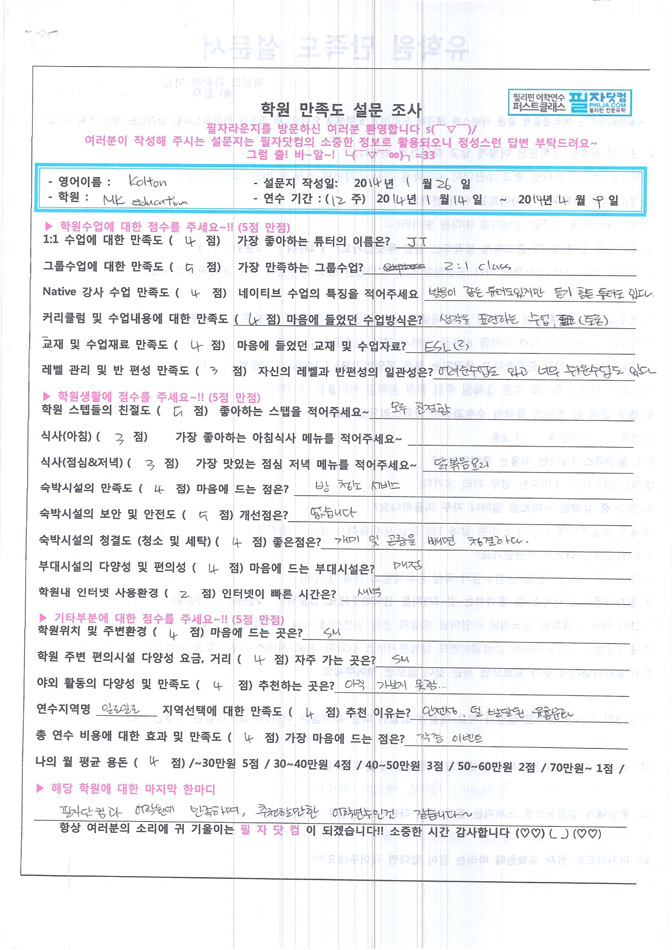 필리핀 어학연수
퍼스트클래스
필자닷컴
PHILJA.COM
필리핀 전문유학
학원 만족도 설문 조사
필자라운지를 방문하신 여러분 환영합니다 s(￣▽￣)/
여러분이 작성해 주시는 설문지는 필자닷컴의 소중한 정보로 활용되오니 정성스런 답변 부탁드려요~
그럼 출! 바~알~! ┗(￣▽￣∞)┓=33
- 영어이름 : Kolton - 설문지 작성일: 2014년 1월 26일
- 학원 : MK education - 연수 기간 : (12 주) 2014년 1월 14일 ~ 2014년 4월 9일
▶ 학원수업에 대한 점수를 주세요~!! (5점 만점)
1:1 수업에 대한 만족도 ( 4 점) 가장 좋아하는 튜터의 이름은? JT
그룹수업에 대한 만족도 ( 5 점) 가장 만족하는 그룹수업? 2:1 class
Native 강사 수업 만족도 ( 4 점) 네이티브 수업의 특징을 적어주세요 발음이 좋은 튜터도있지만 듣기 힘든 튜터도 있다.
커리큘럼 및 수업내용에 대한 만족도 ( 4 점) 마음에 들었던 수업방식은? 생각을 표현하는 수업, (토론)
교재 및 수업재료 만족도 ( 4 점) 마음에 들었던 교재 및 수업자료? ESL(3)
레벨 관리 및 반 편성 만족도 ( 3 점) 자신의 레벨과 반편성의 일관성은? 어려운수업도 있고 너무 쉬운수업도 있다.
▶ 학원생활에 점수를 주세요~!! (5점 만점)
학원 스텝들의 친절도 ( 5 점) 좋아하는 스텝을 적어주세요~ 모두 친절함
식사(아침) ( 3 점) 가장 좋아하는 아침식사 메뉴를 적어주세요~
식사(점심&저녁) ( 3 점) 가장 맛있는 점심 저녁 메뉴를 적어주세요~ 닭볶음요리
숙박시설의 만족도 ( 4 점) 마음에 드는 점은? 방 청소 서비스
숙박시설의 보안 및 안전도 ( 5 점) 개선점은? 없습니다
숙박시설의 청결도 (청소 및 세탁) ( 4 점) 좋은점은? 개미 및 곤충을 빼면 청결하다.
부대시설의 다양성 및 편의성 ( 4 점) 마음에 드는 부대시설은? 매점
학원내 인터넷 사용환경 ( 2 점) 인터넷이 빠른 시간은? 새벽
▶ 기타부분에 대한 점수를 주세요~!! (5점 만점)
학원위치 및 주변환경 ( 4 점) 마음에 드는 곳은? SM
학원 주변 편의시설 다양성 요금, 거리 ( 4 점) 자주 가는 곳은? SM
야외 활동의 다양성 및 만족도 ( 4 점) 추천하는 곳은? 아직 가보지 못함...
연수지역명 일로일로 지역선택에 대한 만족도 ( 4 점) 추천 이유는? 안전성, 덜 발달된 유흥문화
총 연수 비용에 대한 효과 및 만족도 ( 4 점) 가장 마음에 드는 점은? 각종 이벤트
나의 월 평균 용돈 ( 4 점) /~30만원 5점 / 30~40만원 4점 / 40~50만원 3점 / 50~60만원 2점 / 70만원~ 1점 /
▶ 해당 학원에 대한 마지막 한마디
필자닷컴과 어학원에 만족하며, 추천할만한 어학연수인것 같습니다~
항상 여러분의 소리에 귀 기울이는 필 자 닷 컴 이 되겠습니다!! 소중한 시간 감사합니다 (♡♡) (_ _) (♡♡)